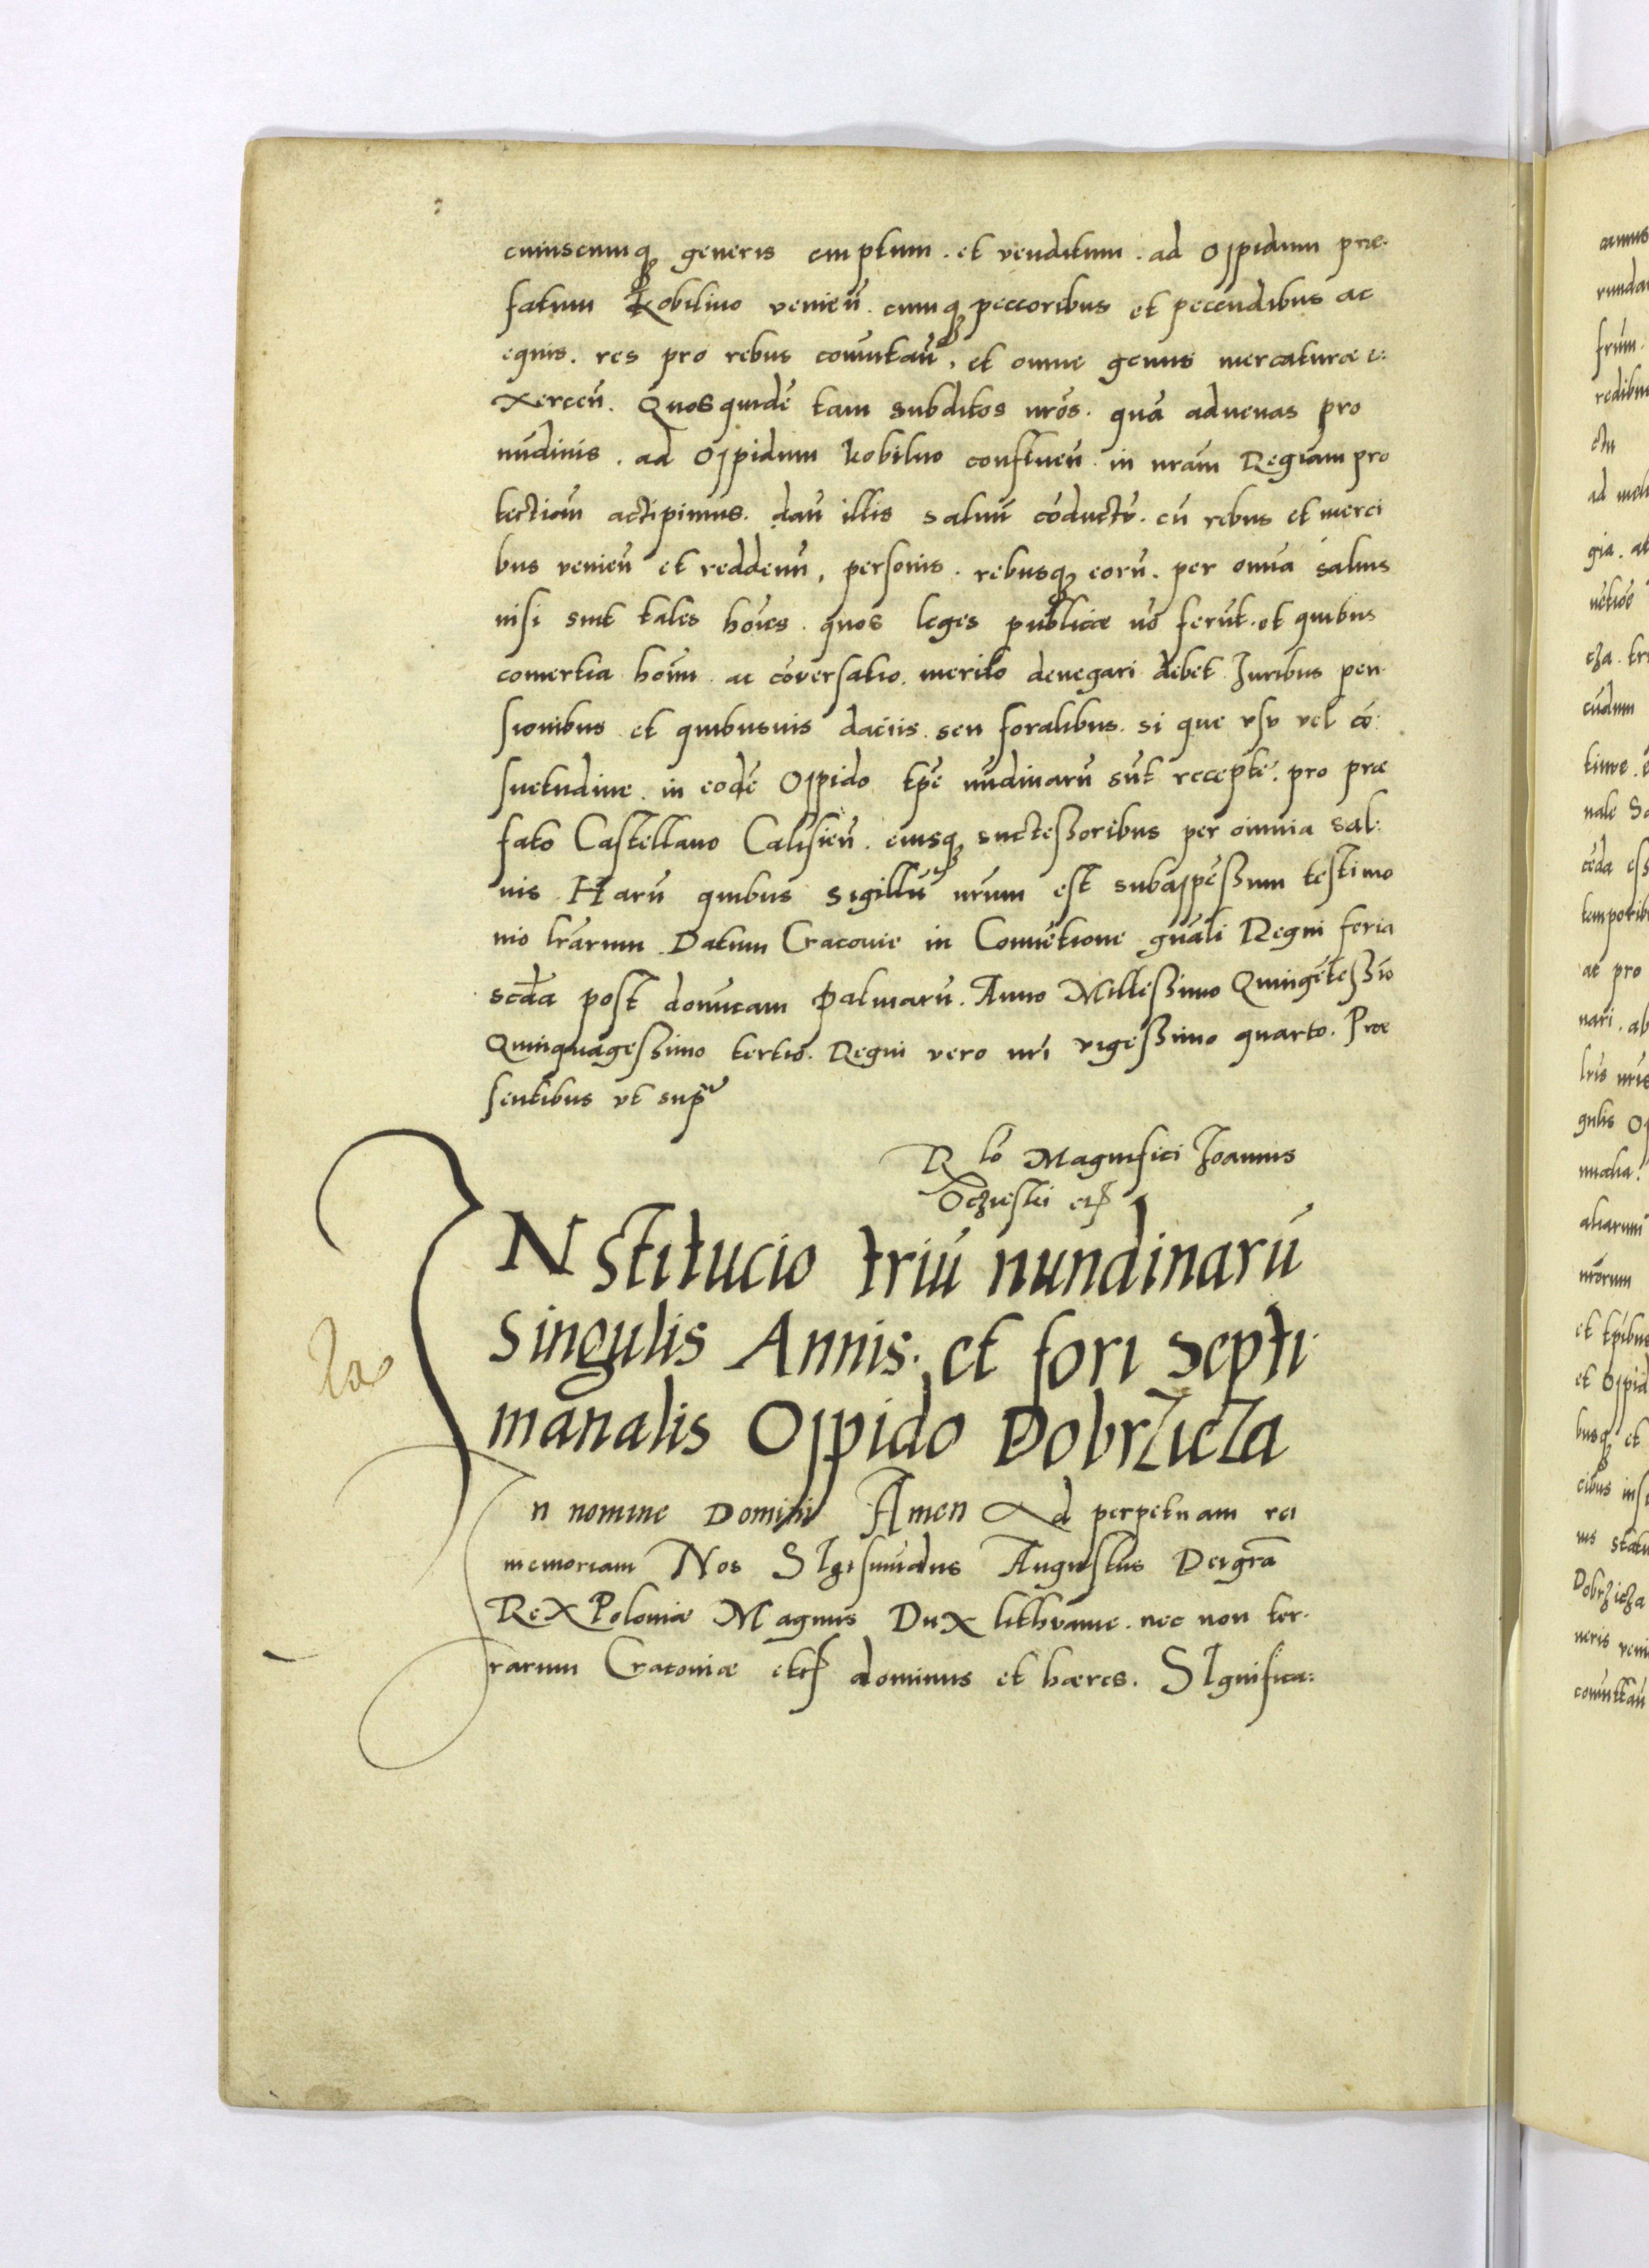 cuiuscunq generis emptum. et venditum. ad Oppidum præ-
fatum Kobilino venieñ. cumq peccoribus et peccudibus ac
equis. res pro rebus comutañ, et omne genus mercaturæ e:
xerceñ. Quos quidē tam subditos nrōs. quā advenas pro
nūdinis. ad Oppidum kobilno confluen. in nrām Regiam pro
tectioñ accipimus. dañ illis saluū cōductū. cū rebus et merci
bus venieñ et reddeun, personis. rebusq eorū. per omīa saluis
nisi sint tales hoīes. quos leges publicæ nō ferūt. et quibus
comertia hoīm ac cōversatio. merito denegari debet Juribus pen-
sionibus et quibusuis daciis. seu foralibus. si que vsv vel cō:
suetudine. in eodē Oppido tpē nūdinarū sūt recepte. pro præ
fato Castellano Calisieñ. eiusq successoribus per omnia sal:
uis. Harū quibus sigillū nrūm est subappēssum testimo
nio lrārum. Datum Cracouie in Conuētione gnāli Regni feria
scdā post donīcam Palmarū. Anno Millessimo Quingētessīo
Quinquagessimo tertio. Regni vero nrī vigessimo quarto. Præ
sentibus vt supᵃ
R lō Magnifici Joannis
Oczieski etc
INstitucio triū nundinarū
Singulis Annis. et fori Septi-
manalis Oppido Dobrzicza
In nomine Domini Amen Ad perpetuam rei
memoriam Nos SIgismūdus Augustus Dei grā
ReX Poloniæ Magnus DuX lithvanie. nec non ter-
rarum Cracoviæ etc dominus et hæres. SIgnifica: